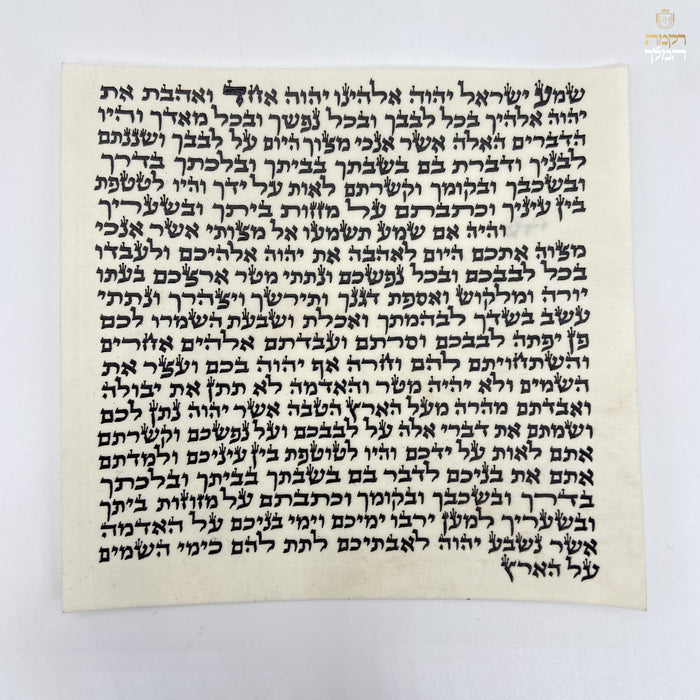 רקמת
המלך
שמע ישראל יהוה אלהינו יהוה אחד ואהבת את
יהוה אלהיך בכל לבבך ובכל נפשך ובכל מאדך והיו
הדברים האלה אשר אנכי מצוך היום על לבבך ושננתם
לבניך ודברת בם בשבתך בביתך ובלכתך בדרך
ובשכבך ובקומך וקשרתם לאות על ידך והיו לטטפת
בין עיניך וכתבתם על מזזות ביתך ובשעריך
והיה אם שמע תשמעו אל מצותי אשר אנכי
מצוה אתכם היום לאהבה את יהוה אלהיכם ולעבדו
בכל לבבכם ובכל נפשכם ונתתי מטר ארצכם בעתו
יורה ומלקוש ואספת דגנך ותירשך ויצהרך ונתתי
עשב בשדך לבהמתך ואכלת ושבעת השמרו לכם
פן יפתה לבבכם וסרתם ועבדתם אלהים אחרים
והשתחויתם להם וחרה אף יהוה בכם ועצר את
השמים ולא יהיה מטר והאדמה לא תתן את יבולה
ואבדתם מהרה מעל הארץ הטבה אשר יהוה נתן לכם
ושמתם את דברי אלה על לבבכם ועל נפשכם וקשרתם
אתם לאות על ידכם והיו לטוטפת בין עיניכם ולמדתם
אתם את בניכם לדבר בם בשבתך בביתך ובלכתך
בדרך ובשכבך ובקומך וכתבתם על מזוזות ביתך
ובשעריך למען ירבו ימיכם וימי בניכם על האדמה
אשר נשבע יהוה לאבתיכם לתת להם כימי השמים
על הארץ